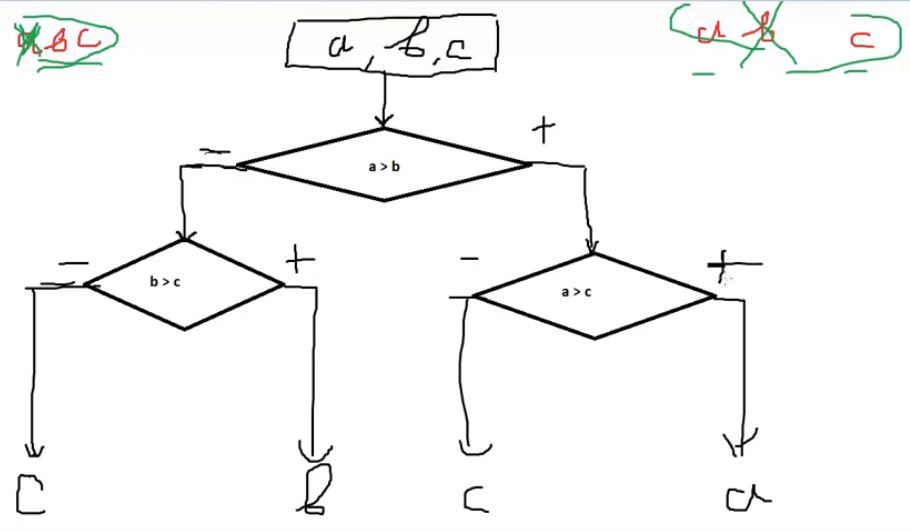 a b c
a, b, c
a b c
- +
a > b
- + - +
b > c a > c
c b c a